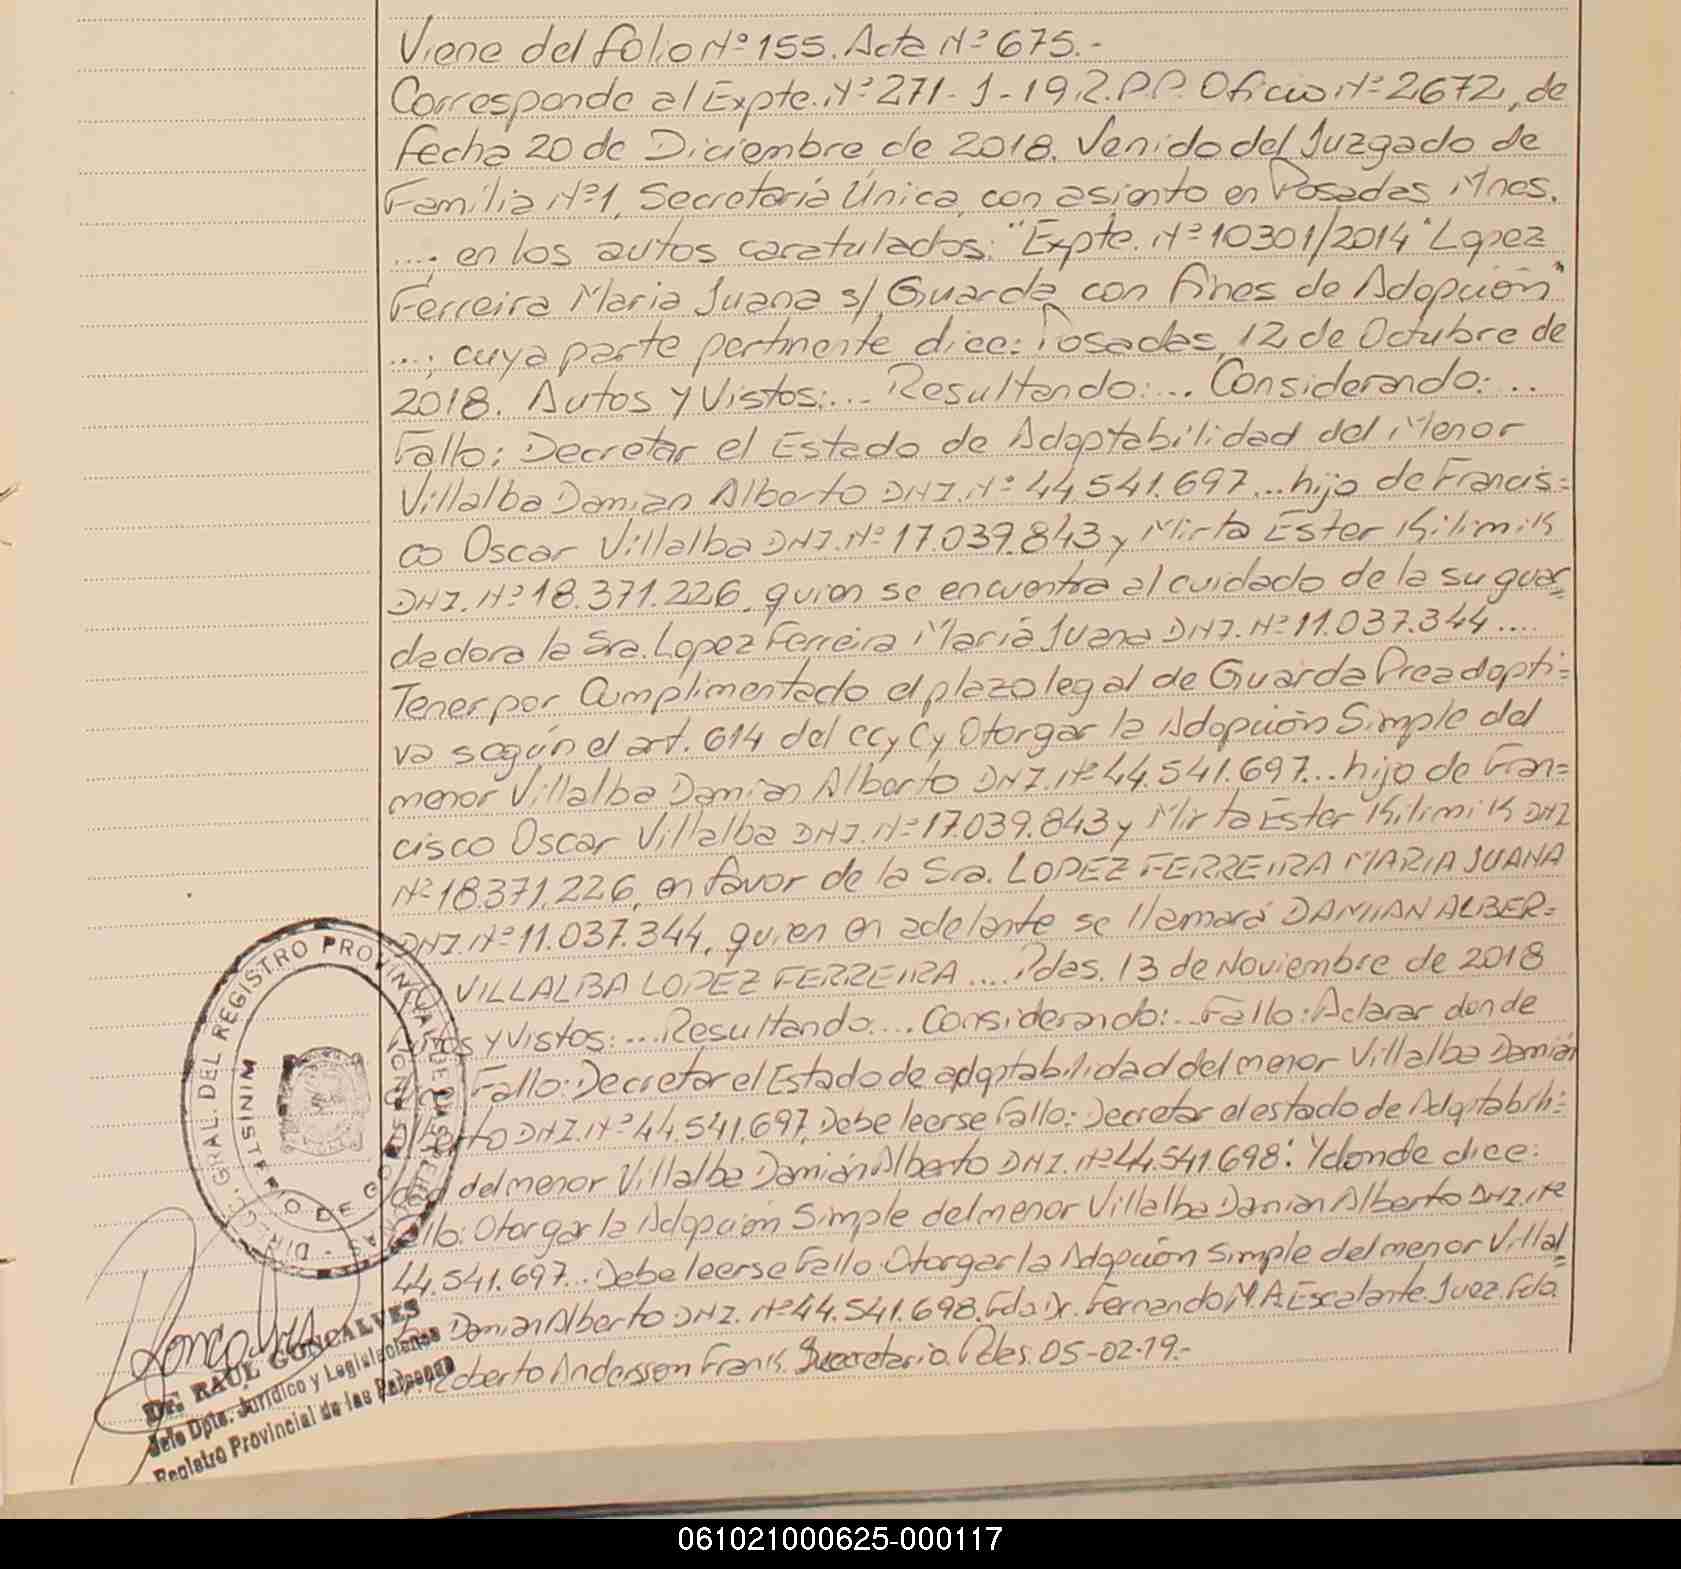 Viene del folio Nº 155. Acta Nº 675.-
Corresponde al Expte. Nº 271-J-19.R.P.P. Oficio Nº 2672, de
fecha 20 de Diciembre de 2018. Venido del Juzgado de
Familia Nº1, Secretaría Única, con asiento en Posadas Mnes.
....; en los autos caratulados: "Expte. Nº 10301/2014 "Lopez
Ferreira Maria Juana s/ Guarda con fines de Adopción"
....; cuya parte pertinente dice: Posadas, 12 de Octubre de
2018. Autos y Vistos:... Resultando:... Considerando:...
Fallo: Decretar el Estado de Adoptabilidad del Menor
Villalba Damian Alberto DNI. Nº 44.541.697...hijo de Francis=
co Oscar Villalba DNI. Nº 17.039.843 y Mirta Ester Kilimik
DNI. Nº 18.371.226, quien se encuentra al cuidado de la su guar=
dadora la Sra. Lopez Ferreira María Juana DNI. Nº 11.037.344....
Tener por Cumplimentado el plazo legal de Guarda Preadopti=
va según el art. 614 del CCyCy Otorgar la Adopción Simple del
menor Villalba Damián Alberto DNI. Nº 44.541.697...hijo de Fran=
cisco Oscar Villalba DNI. Nº 17.039.843 y Mirta Ester Kilimik DNI
Nº 18.371.226, en favor de la Sra. LOPEZ FERREIRA MARIA JUANA
DNI. Nº 11.037.344, quien en adelante se llamará DAMIAN ALBER=
VILLALBA LOPEZ FERREIRA.... Pdas. 13 de Noviembre de 2018
Autos y Vistos:...Resultando:...Considerando:...Fallo: Aclarar donde
Fallo: Decretar el Estado de adoptabilidad del menor Villalba Damián
Alberto DNI. Nº 44.541.697, Debe leerse Fallo: Decretar el estado de Adoptabili=
dad del menor Villalba Damián Alberto DNI. Nº 44.541.698: Y donde dice:
Fallo: Otorgar la Adopción Simple del menor Villalba Damian Alberto DNI. Nº
44.541.697...Debe leerse Fallo Otorgar la Adopción Simple del menor Villal=
ba Damian Alberto DNI. Nº 44.541.698. Fdo Dr. Fernando M.A. Escalante. Juez. Fdo.
Roberto Andersson Frank. Secretario. Pdas. 05-02-19.-
DIREC. GRAL. DEL REGISTRO PROVINCIAL DE LAS PERSONAS
MINISTERIO DE GOBIERNO
Dr. RAUL GONCALVES
Jefe Dpto. Jurídico y Legislaciones
Registro Provincial de las Personas
061021000625-000117